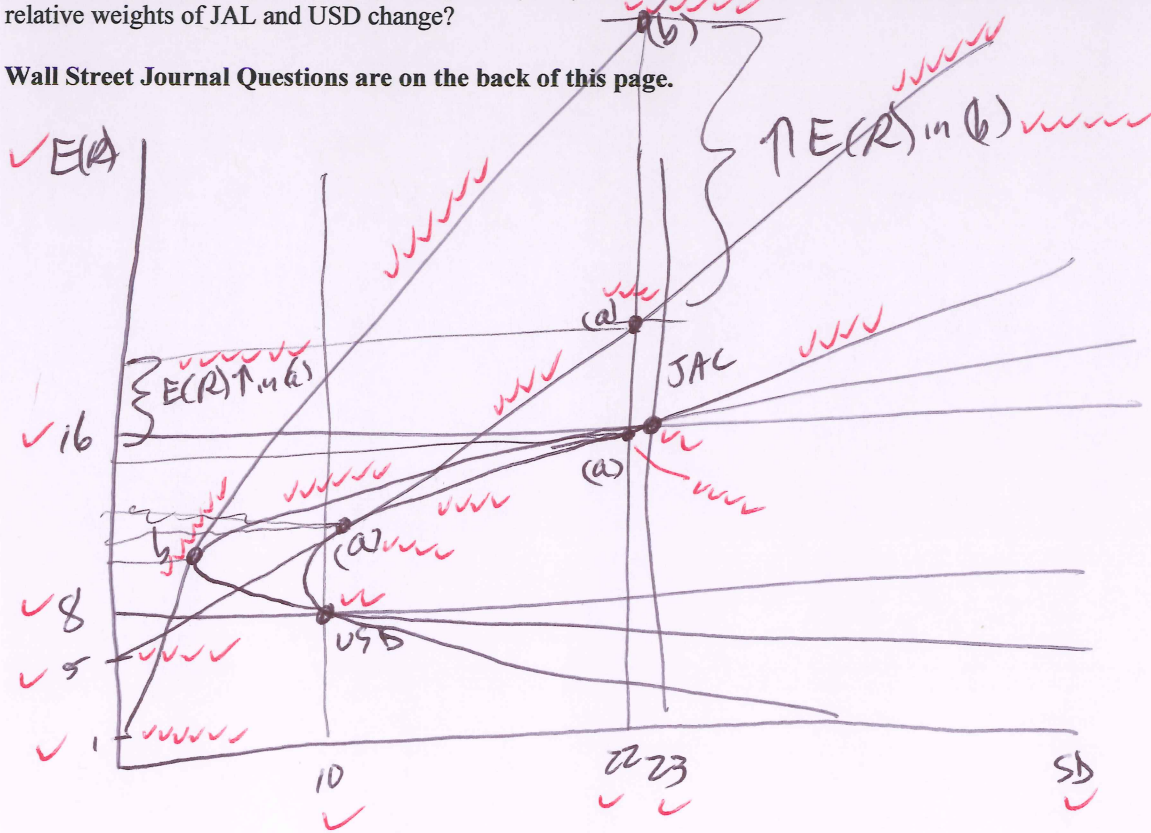 relative weights of JAL and USD change?
(b)
Wall Street Journal Questions are on the back of this page.
↑ E(R) in (b)
E(R)
(a)
JAL
E(R)↑ in (a)
16
(a)
(a)
b
8
USD
5
1
10
22 23
SD